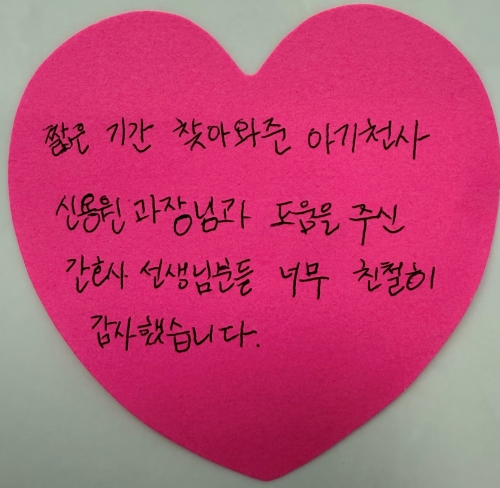 짧은 기간 찾아와준 아기천사
신용원 과장님과 도움을 주신
간호사 선생님분들 너무 친철히
감사했습니다.